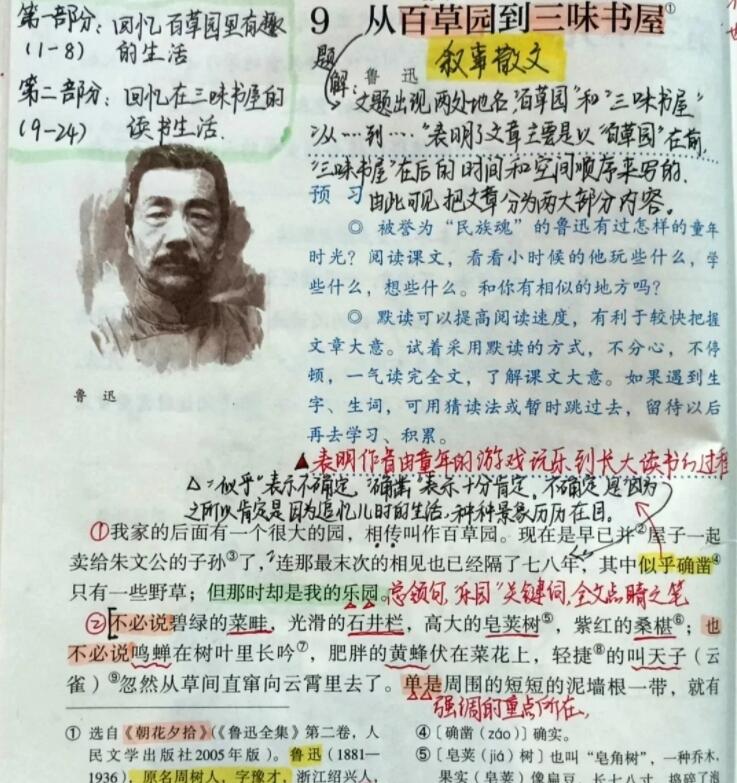 第一部分：回忆百草园里有趣
(1-8) 的生活
第二部分：回忆在三味书屋的
(9-24) 读书生活.
9 从百草园到三味书屋①
鲁迅 叙事散文
题解：文题出现两处地名，"百草园"和"三味书屋"
"从……到……"表明了文章主要是以"百草园"在前,
"三味书屋"在后的时间和空间顺序来写的.
由此可见，把文章分为两大部分内容。
预 习
◎ 被誉为“民族魂”的鲁迅有过怎样的童年
时光？阅读课文，看看小时候的他玩些什么，学
些什么，想些什么。和你有相似的地方吗？
◎ 默读可以提高阅读速度，有利于较快把握
文章大意。试着采用默读的方式，不分心，不停
顿，一气读完全文，了解课文大意。如果遇到生
字、生词，可用猜读法或暂时跳过去，留待以后
再去学习、积累。
鲁 迅
▲表明作者由童年的游戏玩乐到长大读书的过程
△："似乎"表示不确定，"确凿"表示十分肯定，不确定是因为
之所以肯定是因为追忆儿时的生活，种种景象历历在目。
①我家的后面有一个很大的园，相传叫作百草园。现在是早已并②屋子一起
卖给朱文公的子孙③了，连那最末次的相见也已经隔了七八年，其中似乎确凿④
只有一些野草；但那时却是我的乐园。总领句，"乐园"关键词，全文点睛之笔
②不必说碧绿的菜畦，光滑的石井栏，高大的皂荚树⑤，紫红的桑椹⑥；也
不必说鸣蝉在树叶里长吟⑦，肥胖的黄蜂伏在菜花上，轻捷⑧的叫天子（云
雀）⑨忽然从草间直窜向云霄里去了。单是周围的短短的泥墙根一带，就有
强调的重点所在,
① 选自《朝花夕拾》(《鲁迅全集》第二卷，人
民文学出版社2005年版)。鲁迅（1881—
1936)，原名周树人，字豫才，浙江绍兴人，
④〔确凿（záo）〕确实。
⑤〔皂荚（jiá）树〕也叫“皂角树”，一种乔木，
果实（皂荚）像扁豆，长十八寸，捣碎了泡